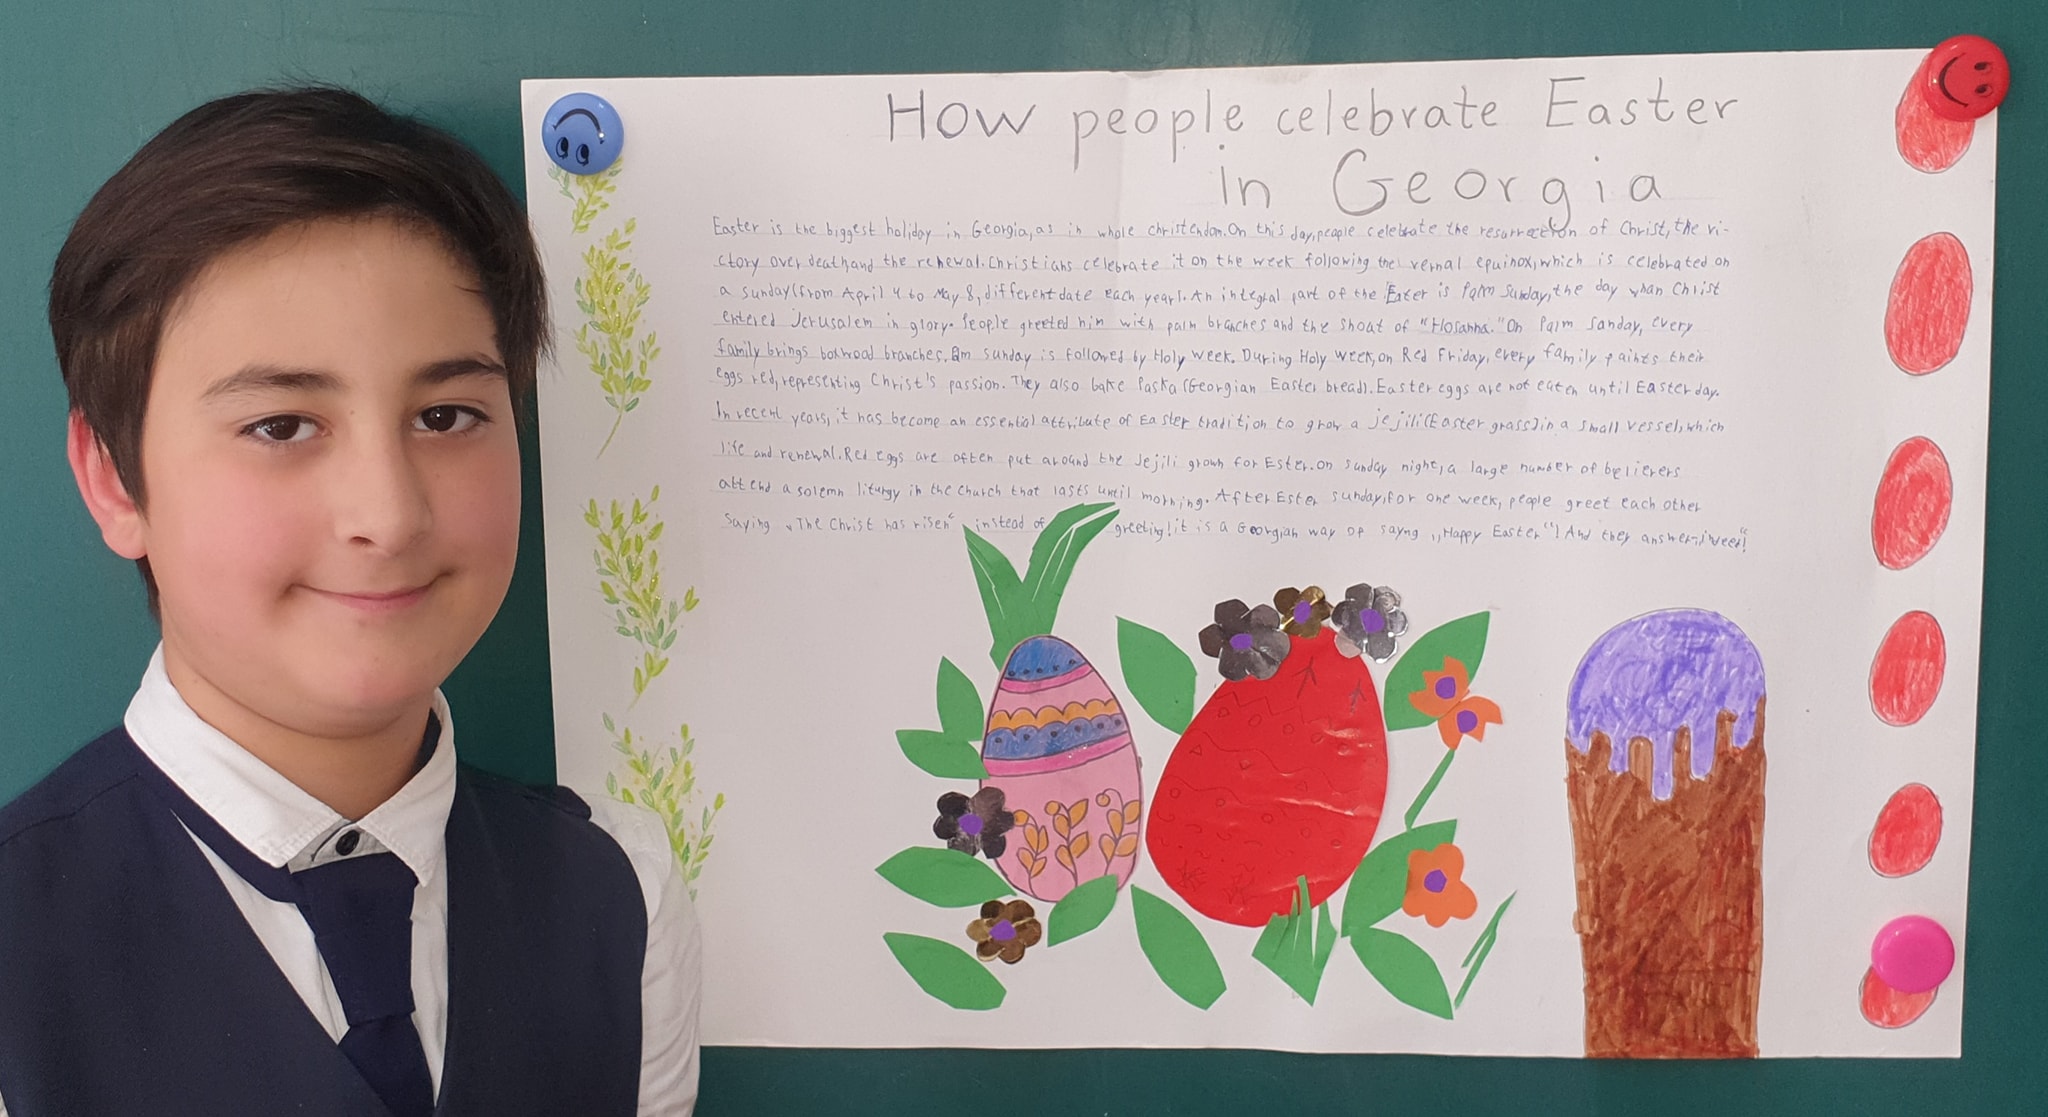 How people celebrate Easter
in Georgia
Easter is the biggest holiday in Georgia, as in whole christendan. On this day, people celebrate the resurrection of Christ, the vi-
ctory over death and the renewal. Christians celebrate it on the week following the vernal epuinox, which is celebrated on
a sunday (from April 4 to May 8, different date each year). An integral part of the Easter is Palm Sunday, the day whan Christ
entered Jerusalem in glory. People greeted him with palm branches and the shout of "Hosanna." On Palm Sanday, every
family brings boxwood branches. Palm sunday is followed by Holy week. During Holy week, on Red Friday, every family paints their
eggs red, representing Christ's passion. They also bake Paska (Georgian Easter bread). Easter eggs are not eaten until Easter day.
In recent years, it has become an essential attribute of Easter tradition to grow a jejili (Easter grass) in a small vessel, which
life and renewal. Red eggs are often put around the Jejili grown for Ester. on sunday night, a large number of believers
attend a solemn liturgy in the church that lasts until morning. After Ester sunday, for one week, people greet each other
Saying „The Christ has risen“ instead of greeting! it is a Georgian way of sayng „Happy Easter“! And they answer, indeed“!